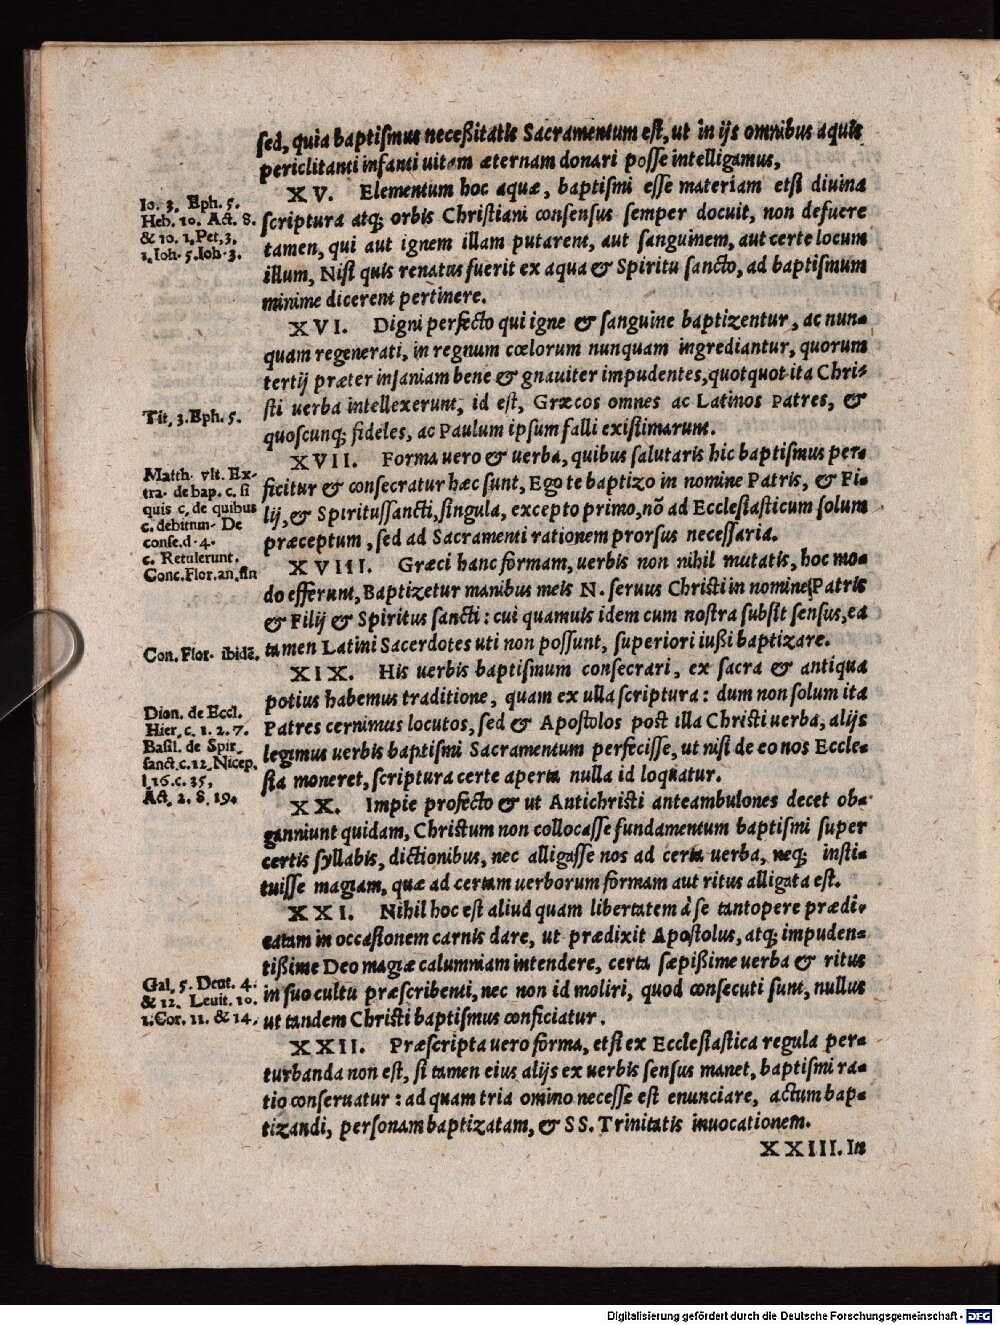 sed, quia baptiſmus neceßitatis Sacramentum eſt, ut in ijs omnibus aquis
periclitanti infanti uitam æternam donari poſſe intelligamus,
XV. Elementum hoc aquæ, baptiſmi eſſe materiam etſi diuina
ſcriptura atq; orbis Chriſtiani conſenſus ſemper docuit, non defuere
tamen, qui aut ignem illam putarent, aut ſanguinem, aut certe locum
illum, Niſi quis renatus fuerit ex aqua & Spiritu ſancto, ad baptiſmum
minime dicerent pertinere.
Io. 3. Eph. 5.
Heb. 10. Act. 8.
& 10. 1. Pet. 3.
1. Ioh. 5. Ioh. 3.
XVI. Digni perfecto qui igne & ſanguine baptizentur, ac nun-
quam regenerati, in regnum cœlorum nunquam ingrediantur, quorum
tertij præter inſaniam bene & gnauiter impudentes, quotquot ita Chri-
ſti uerba intellexerunt, id eſt, Græcos omnes ac Latinos Patres, &
quoſcunq; fideles, ac Paulum ipſum falli exiſtimarunt.
Tit. 3. Eph. 5.
XVII. Forma uero & uerba, quibus ſalutaris hic baptiſmus per-
ficitur & conſecratur hæc ſunt, Ego te baptizo in nomine Patris, & Fi-
lij, & Spirituſſancti, ſingula, excepto primo, nõ ad Eccleſiaſticum ſolum
præceptum, ſed ad Sacramenti rationem prorſus neceſſaria.
Matth. vlt. Ex-
tra. de bap. c. ſi
quis c. de quibus
c. debitum. De
conſe. d. 4.
c. Retulerunt.
Conc. Flor. an. fin
XVIII. Græci hanc formam, uerbis non nihil mutatis, hoc mo-
do efferunt, Baptizetur manibus meis N. ſeruus Chriſti in nomine Patris
& Filij & Spiritus ſancti: cui quamuis idem cum noſtra ſubſit ſenſus, ea
tamen Latini Sacerdotes uti non poſſunt, ſuperiori iußi baptizare.
Con. Flor. ibidẽ.
XIX. His uerbis baptiſmum conſecrari, ex ſacra & antiqua
potius habemus traditione, quam ex ulla ſcriptura: dum non ſolum ita
Patres cernimus locutos, ſed & Apoſtolos poſt illa Chriſti uerba, alijs
legimus uerbis baptiſmi Sacramentum perfeciſſe, ut niſi de eo nos Eccle-
ſia moneret, ſcriptura certe aperta nulla id loquatur.
Dion. de Eccl.
Hier. c. 1. 2. 7.
Baſil. de Spir.
ſanct. c. 12. Nicep.
l. 16. c. 35.
Act. 2. 8. 19.
XX. Impie profecto & ut Antichriſti anteambulones decet ob-
ganniunt quidam, Chriſtum non collocaſſe fundamentum baptiſmi ſuper
certis ſyllabis, dictionibus, nec alligaſſe nos ad certa uerba, neq; inſti-
tuiſſe magiam, quæ ad certam uerborum formam aut ritus alligata eſt.
XXI. Nihil hoc eſt aliud quam libertatem à ſe tantopere prædi-
catam in occaſionem carnis dare, ut prædixit Apoſtolus, atq; impuden-
tißime Deo magiæ calumniam intendere, certa ſæpißime uerba & ritus
in ſuo cultu præſcribenti, nec non id moliri, quod conſecuti ſunt, nullus
ut tandem Chriſti baptiſmus conficiatur.
Gal. 5. Deut. 4.
& 12. Leuit. 10.
1. Cor. 11. & 14.
XXII. Præſcripta uero forma, etſi ex Eccleſiaſtica regula per-
turbanda non eſt, ſi tamen eius alijs ex uerbis ſenſus manet, baptiſmi ra-
tio conſeruatur: ad quam tria omino neceſſe eſt enunciare, actum bap-
tizandi, perſonam baptizatam, & SS. Trinitatis inuocationem.
XXIII. In
Digitalisierung gefördert durch die Deutsche Forschungsgemeinschaft - DFG